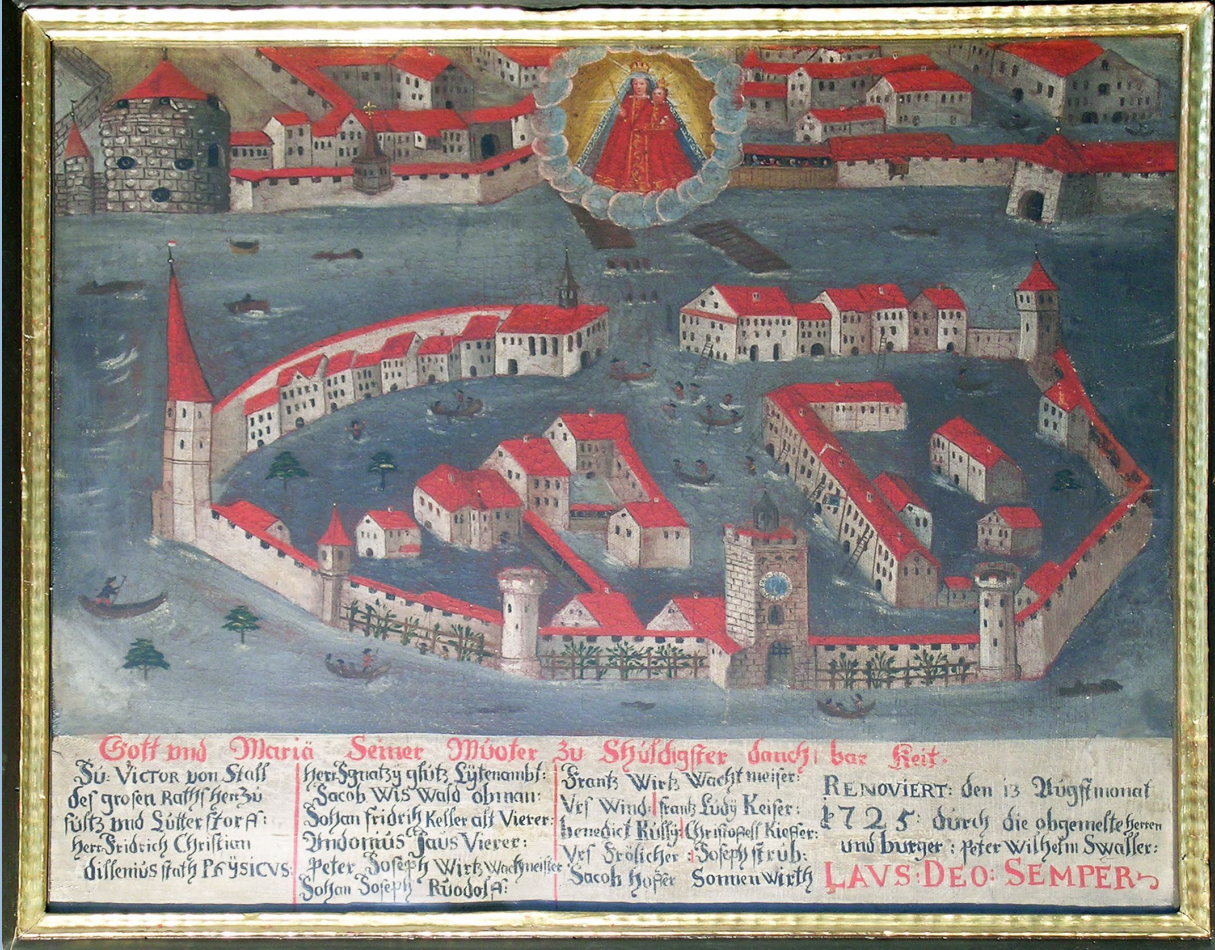 Gott vnd Mariä Seiner Mŭoter zu Shŭldigster danch bar Keit.
Jŭ: Victor von Stall
des grosen Raths Her zŭ
fultz vnd Lŭtterstorff:
Herr Fridrich Christian
dissenius stath Phÿsicŭs:
Herr Ignatzÿ glŭtz Lÿtenambt:
Jacob Wis Wald obman:
Johan fridrih Keller alt Vierer:
Andonius Jaus Vierer:
Peter Joseph Wirtz Wachmeister
Johan Joseph Rŭodolff:
Frantz Wirtz Wacht meiser:
Vrs Wind: frantz Lŭdÿ Keiser:
benedict Kŭllÿ: Christoffell Kieffer:
Vrs Frölicher: Joseph strŭb:
Jacob Hoffer Sonnen Wirth
Renoviert: den 13 Aŭgstmonat
1725: dŭrch die obgemelte herren
und bŭrger: Peter Wilhelm Swaller:
Lavs: Deo: Semper